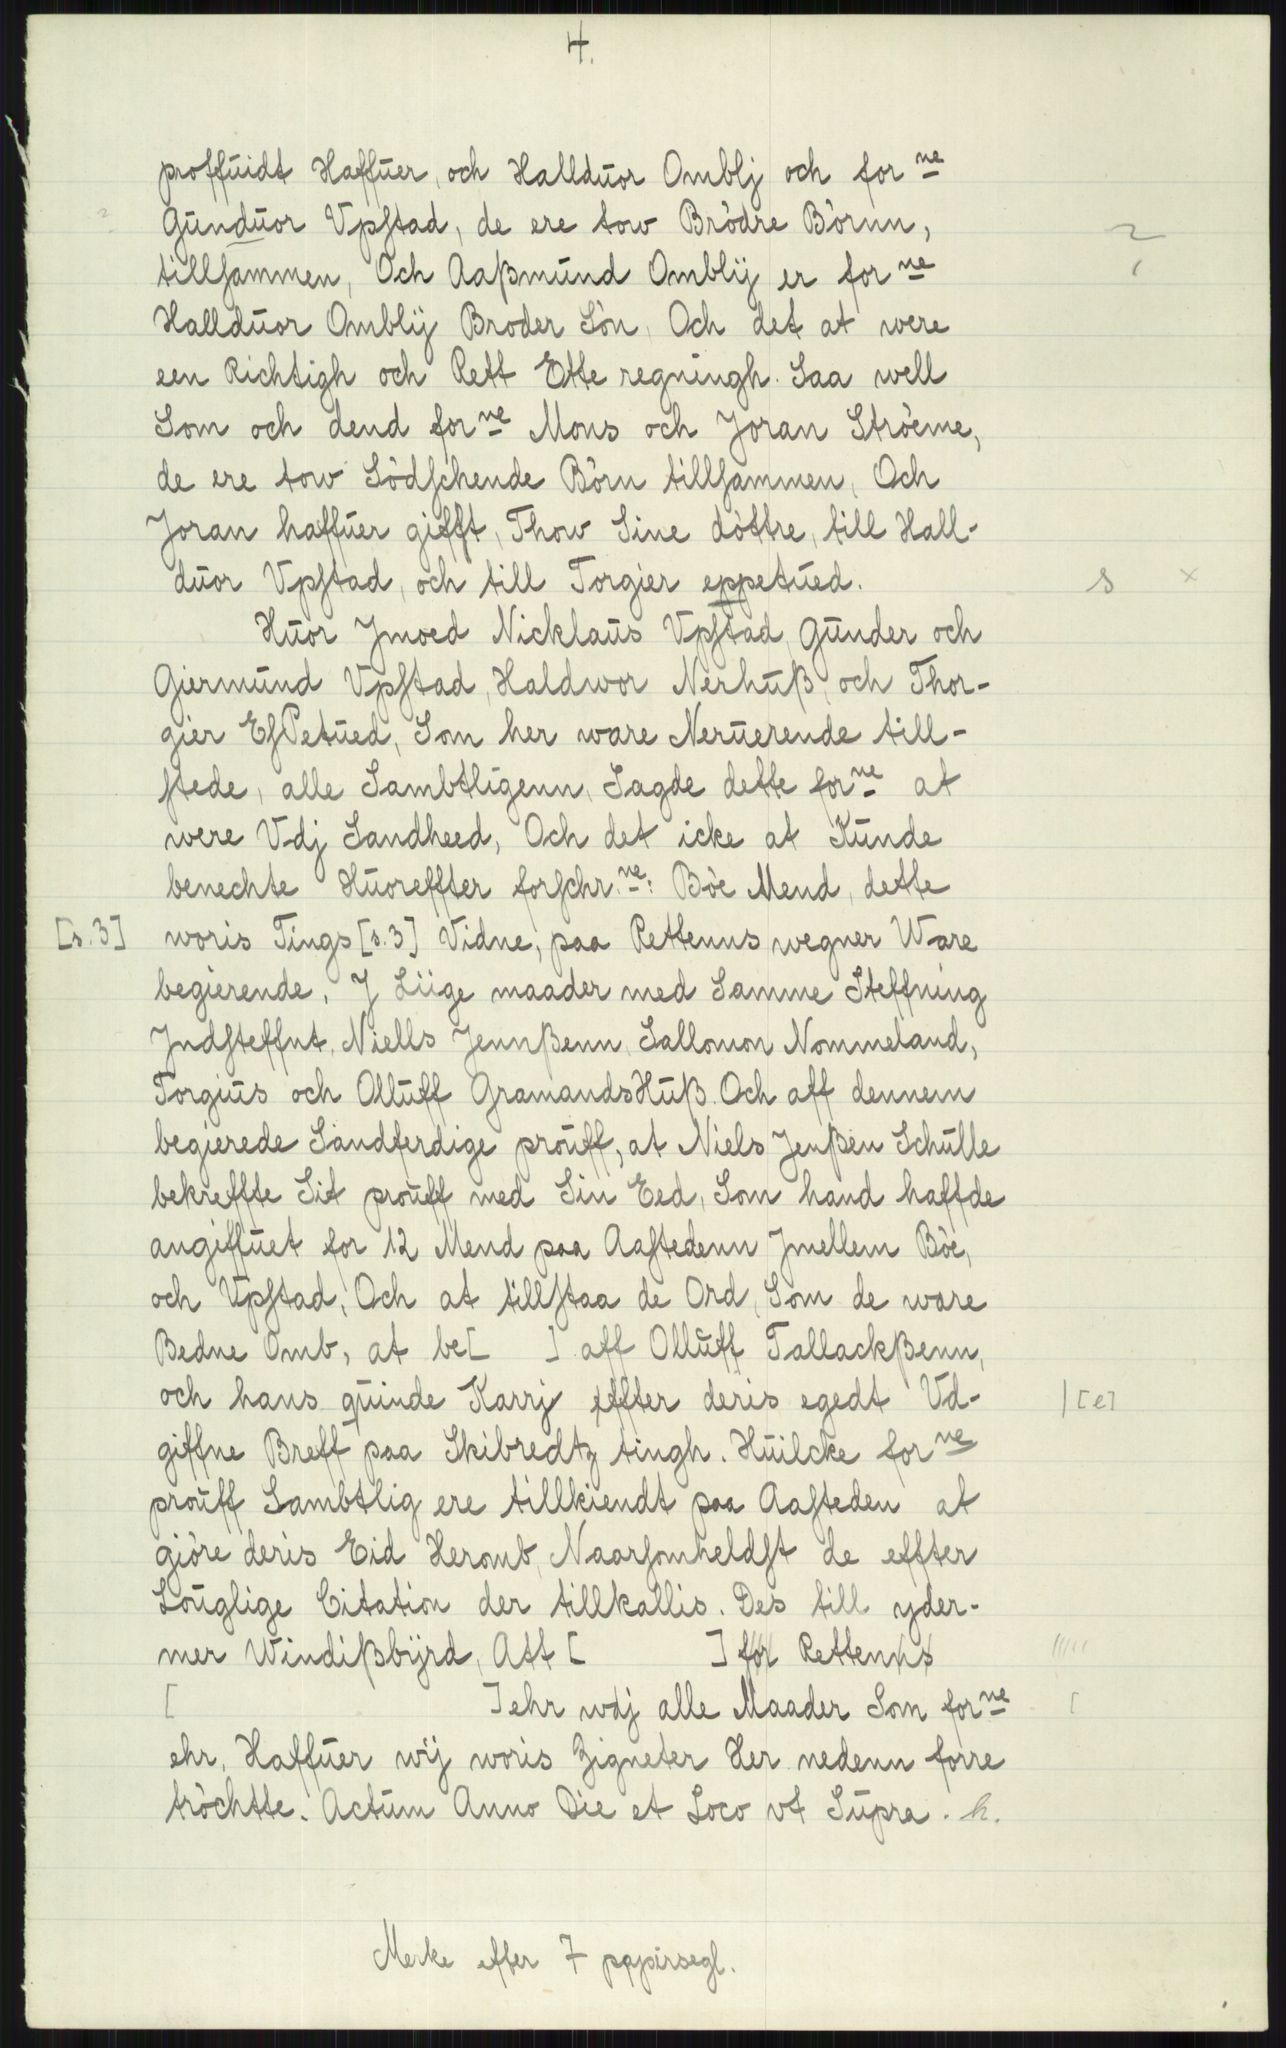 4.
proffuidt Haffuer, och Hallduor Omblj och for ne
Gunduor Vpstad, de ere tow Brödre Börnn,
tillsammen, Och Aaßmund Omblÿ er for ne
Hallduor Omblÿ Broder Sön, Och det at were
een Richtigh och Rett Ette regningh. Saa well
Som och dend for ne Mons och Joran Ströeme,
de ere tow Södschende Börn tillsammen, Och
Joran haffuer gifft, Thow Sine döttre, till Hall-
duor Vpstad, och till Torgier eppetued. s x
Huor Jmoed Nicklaus Vpstad, Gunder och
Giermund Vpstad, Haldwor Nerhuß, och Thor-
gier EsPetued, Som her ware Neruerende till-
stede, alle Sambtligenn, Sagde dette for ne at
were Vdj Sandheed, Och det icke at Kunde
benechte Huoreffter forschr. ne: Böe Mend, dette
[s.3] woris Tings [s.3] Vidne, paa Rettenns wegner Ware
begierende. J Liige maader med Samme Steffning
Jndsteffnt, Niells Jennßenn, Sallomon Nommeland,
Torgius och Olluff GramandsHuß. Och aff dennem
begierede Sandferdige prouff, at Niels Jenßen Schulle
bekreffte Sit prouff med Sin Eed, Som hand haffde
angiffuet for 12 Mend paa Aastedenn Jmellem Böe,
och Vpstad, Och at tillstaa de Ord, Som de ware
Bedne Omb, at be[ ] aff Olluff Tallackßenn,
och hans quinde Karrj effter deris egedt Vd- |[e]
giffne Breff paa Skibredtz tingh. Huilcke for ne
prouff Sambtlig ere tillkiendt paa Aasteden at
giöre deris Eid Heromb, Naarsomheldst de effter
Louglige Citation der tillkallis. Des till yder-
mer Windißbÿrd, Att [ ] for Rettenns
[ ] ehr wdj alle Maader Som for ne [
ehr, Haffuer wÿ woris Zigneter Her nedenn forre
tröchtte. Actum Anno Die et Loco vt Supra. h.
Merke efter 7 papirsegl.